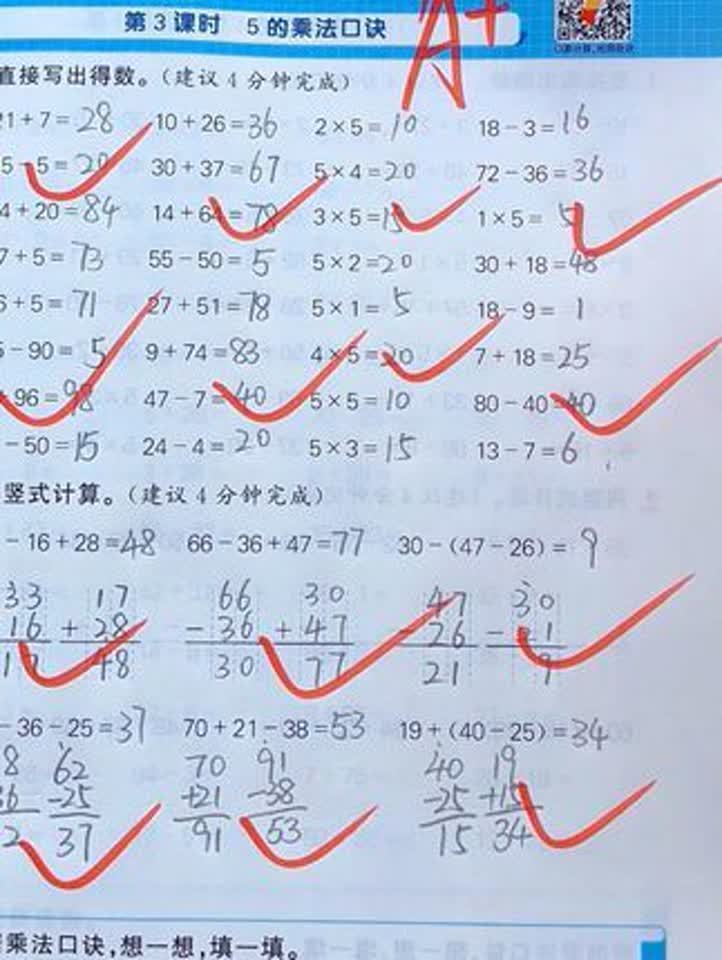 第3课时 5的乘法口诀 A+
直接写出得数。(建议4分钟完成)
21+7=28 10+26=36 2×5=10 18-3=16
5-5=20 30+37=67 5×4=20 72-36=36
4+20=84 14+64=78 3×5=15 1×5=5
7+5=73 55-50=5 5×2=20 30+18=48
6+5=71 27+51=78 5×1=5 18-9=1
5-90=5 9+74=83 4×5=20 7+18=25
+96=98 47-7=40 5×5=10 80-40=40
-50=15 24-4=20 5×3=15 13-7=6
竖式计算。(建议4分钟完成)
-16+28=48 66-36+47=77 30-(47-26)=9
33 17 66 30 47 30
16 +28 -36 +47 -26 -21
17 48 30 77 21 9
-36-25=37 70+21-38=53 19+(40-25)=34
8 62 70 91 40 19
36 -25 +21 -38 -25 +15
2 37 91 53 15 34
乘法口诀,想一想,填一填。